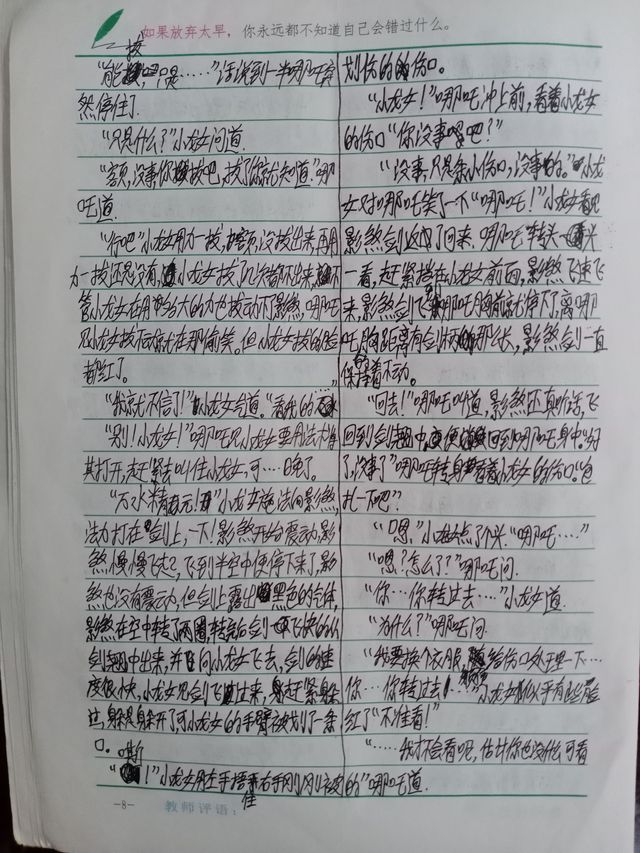 如果放弃太早，你永远都不知道自己会错过什么。
拔
"能，只是……"话说到一半哪吒突
然停住了
"只是什么？"小龙女问道
"额，没事你拔吧，拔了你就知道"哪
吒道
"行吧"小龙女用力一拔，没拔出来再用
力一拔还是没有，小龙女拔了几次都不出来，不
管小龙女在用多大的力也拔动不了影煞，哪吒
见小龙女拔不动就在那偷笑。但小龙女拔的脸
都红了。
"我就不信了！"小龙女道。"看我的
"别！小龙女！"哪吒见小龙女要用法术将
其打开，赶紧去叫住小龙女，可…晚了。
"万水精元！"小龙女施法向影煞，
法力打在剑上，一下！影煞开始震动，影
煞慢慢飞起，飞到半空中便停下来了，影
煞也没有震动，但剑上露出黑色的气体，
影煞在空中转了两圈，转完后剑飞快的从
剑翘中出来，并飞向小龙女飞去，剑的速
度很快，小龙女见剑飞过来，赶紧躲
过，躲是躲开了，可小龙女的手臂被划了一条
口。嘶
"！"小龙女用左手捂住右手刚刚被
划伤的伤口。
"小龙女！"哪吒冲上前，看着小龙女
的伤口"你没事吧？"
"没事，只是条小伤口，没事的。"小龙
女对哪吒笑了一下"哪吒！"小龙女看见
影煞剑又回来，哪吒转头
一看，赶紧挡在小龙女前面，影煞飞速飞
来，影煞剑飞到哪吒胸前就停下了，离哪
吒胸距离有剑柄的那么长，影煞剑一直
保持着不动。
"回去！"哪吒叫道，影煞还真听话，飞
回到剑翘中，便回到哪吒身中。"好
了，没事了"哪吒转身看着小龙女的伤口。"包
扎一下吧？"
"嗯"小龙女点了个头。"哪吒……"
"嗯？怎么了？"哪吒问
"你…你转过去…"小龙女道
"为什么？"哪吒问
"我要换个衣服，给伤口处理一下…
你…你转过去！…"小龙女似乎有些脸
红了"不准看！"
"……我才不会看呢，估计你也没什么可看
的"哪吒道
-8- 教师评语：